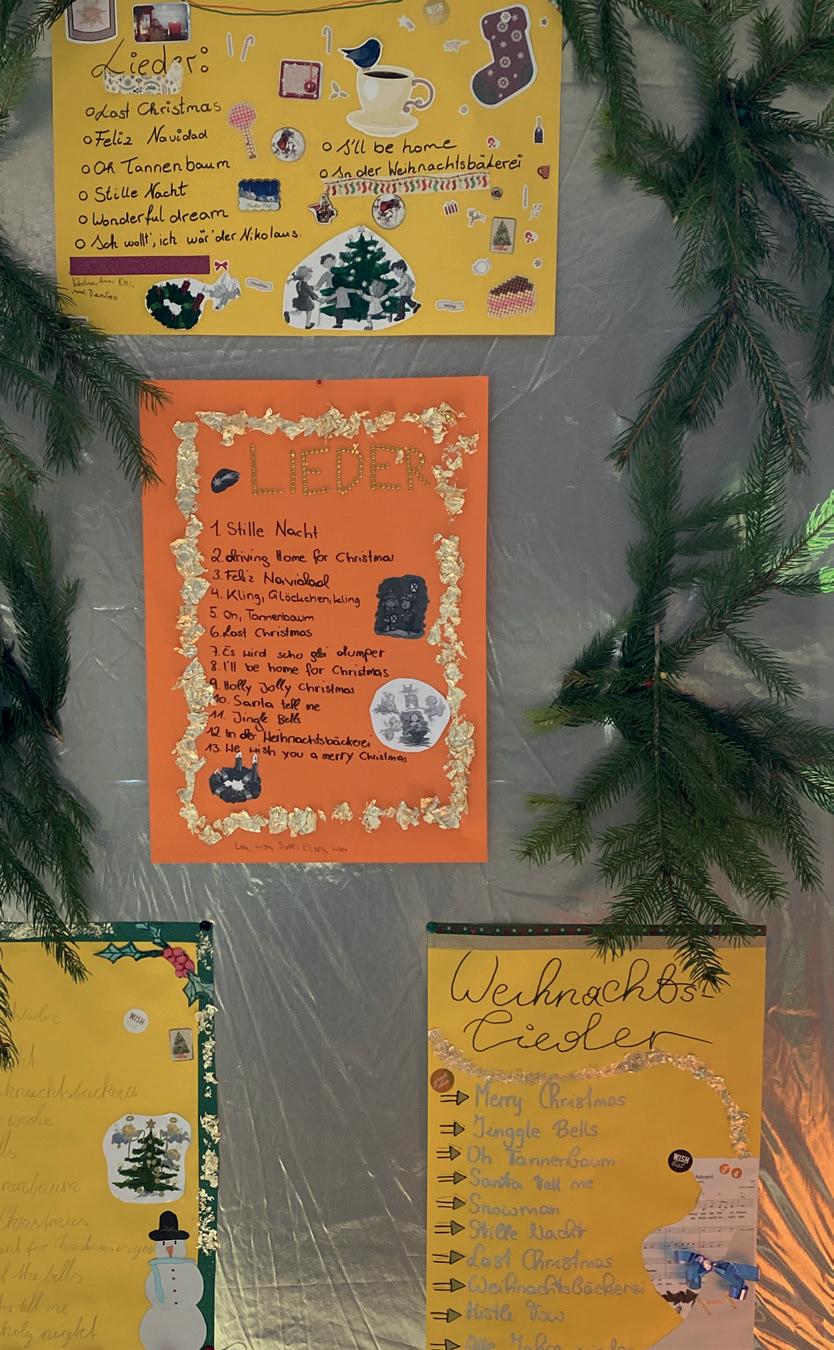 Lieder:
o Last Christmas
o Feliz Navidad
o Oh Tannenbaum
o Stille Nacht
o Wonderful dream
o Ich wollt', ich wär' der Nikolaus.
o I'll be home
o In der Weihnachtsbäckerei
LIEDER
1. Stille Nacht
2. driving Home for Christmas
3. Feliz Navidad
4. Kling, Glöckchen, kling
5. Oh, Tannenbaum
6. Last Christmas
7. Es wird scho glei dumper
8. I'll be home for Christmas
9. Holly Jolly Christmas
10. Santa tell me
11. Jingle Bells
12. In der Weihnachtsbäckerei
13. We wish you a merry Christmas
WISH
tell me
holy night
Weihnachts-
lieder
Merry Christmas
Jinggle Bells
Oh Tannenbaum
Santa tell me
Snowman
Stille Nacht
Last Christmas
Weihnachtsbäckerei
Mistle Tow
Alle Jahre
WISH
Advent